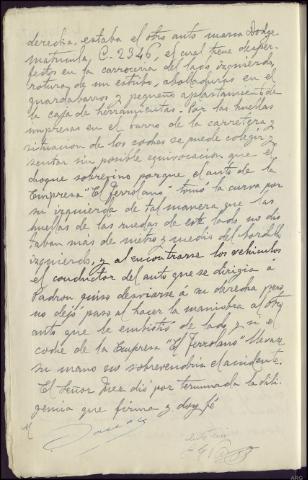 derecha, estaba el otro auto marca Dodge
matricula, C-2346, el cual tiene desper-
fectos en la carroceria del lado izquierdo,
rotura de un estribo, abolladuras en el
guardabarros y pequeño aplastamiento de
la caja de herramientas. Por las huellas
impresas en el barro de la carretera y
situacion de los coches se puede colegir y
sentar sin posible equivocacion que el
choque sobrevino porque el auto de la
Empresa "El Ferrolano" tomó la curva por
su izquierda de tal manera que las
huellas de las ruedas de este lado no dis
taban mas de metro y medio del bordillo
izquierdo, y al encontrarse los vehiculos
el conductor del auto que se dirigia a
Padron quiso desviarse á su derecha pero
no dejó paso al hacer la maniobra al otro
auto que le embistió de lado y si el
coche de la Empresa "El Ferrolano" llevase
su mano no sobrevendria el accidente.
El Señor Juez dió por terminada la dili-
gencia que firma y doy fé